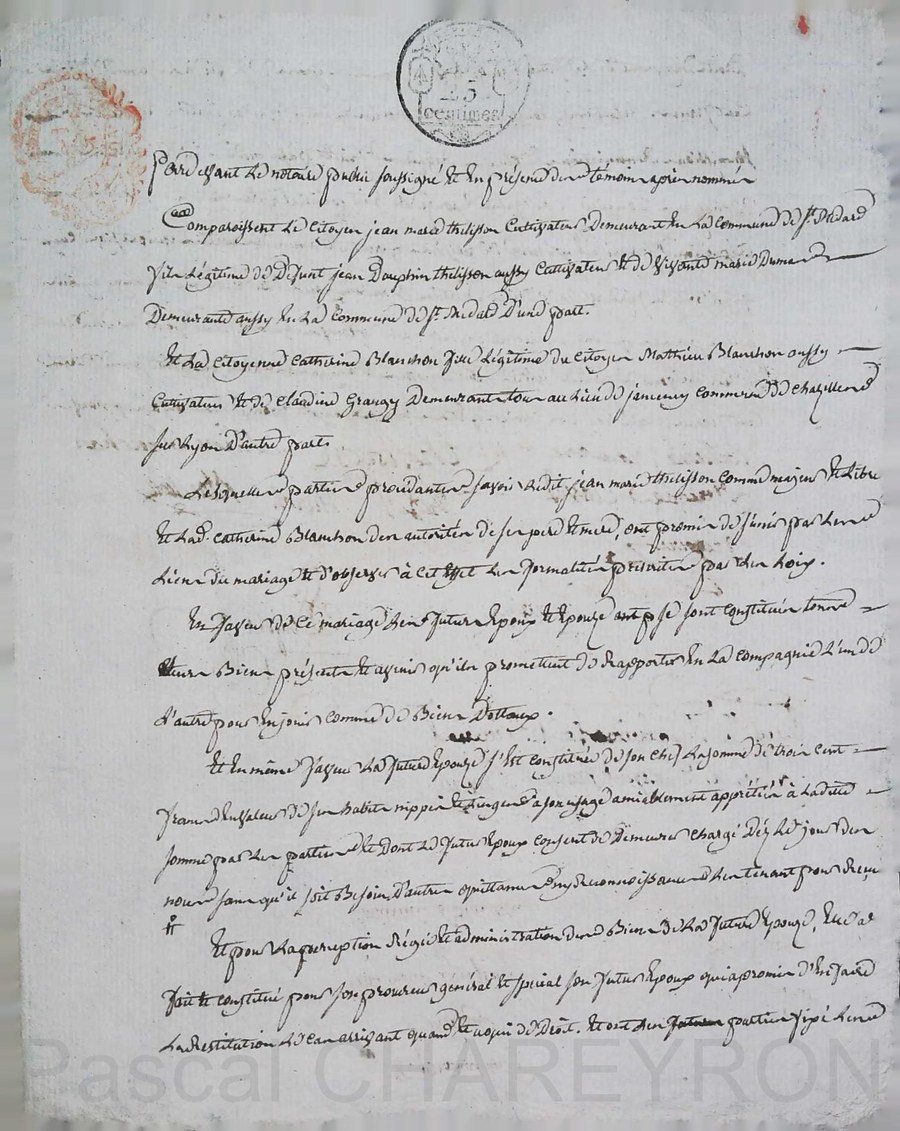 25
centimes
Pardevant Le notaire public soussigné Et En présence des témoins après nommés
Comparoissent Le Citoyen jean marie thelisson Cultivateur Demeurant En La Commune de St. Médard
fils Légitime de Defunt jean Dauphin thelisson aussy Cultivateur Et de vivante marie Dumas
Demeurante aussy En La Commune de St. Médard D'une part.
Et La Citoyenne Catherine Blanchon fille Légitime du Citoyen Mathieu Blanchon aussy
Cultivateur Et de Claudine Grangy Demeurant tous au Lieu de commune de Chazelles
sur Lyon D'autre part.
Lesquelles parties procédantes savoir Ledit jean marie thelisson comme majeur Et Libre
Et Lad. Catherine Blanchon des autorités de ses père Et mère, ont promis de s'unir par Les
Liens du mariage Et d'observer à Cet Effet Les formalités prescrites par Les Loix.
En faveur de Ce mariage Les futurs Epoux Et Epouze se sont Constitués tous
Leurs Biens présents Et avenir qu'ils promettent de Rapporter En La compagnie L'un de
L'autre pour En jouir comme de Biens Dottaux.
Et En même faveur La future Epouze s'Est Constituée de son chef La somme de trois Cent
francs En valeur de ses habits nippes Et Linges à son usage amiablement appréciés à Ladite
somme par Les parties Et dont Le futur Epoux consent de Demeurer chargé Dez Le jour des
noces sans qu'il soit Besoin D'autre quittance ny Reconnoissance Les tenant pour Reçu
Et pour La perception Régie Et administration des Biens De La future Epouze, Elle a
fait Et Constitué pour son procureur général Et spécial son futur Epoux qui a promis d'En faire
La Restitution Le Cas arrivant quand Et à qui de Droit. Et ont Les parties fixé Les
Pascal CHAREYRON